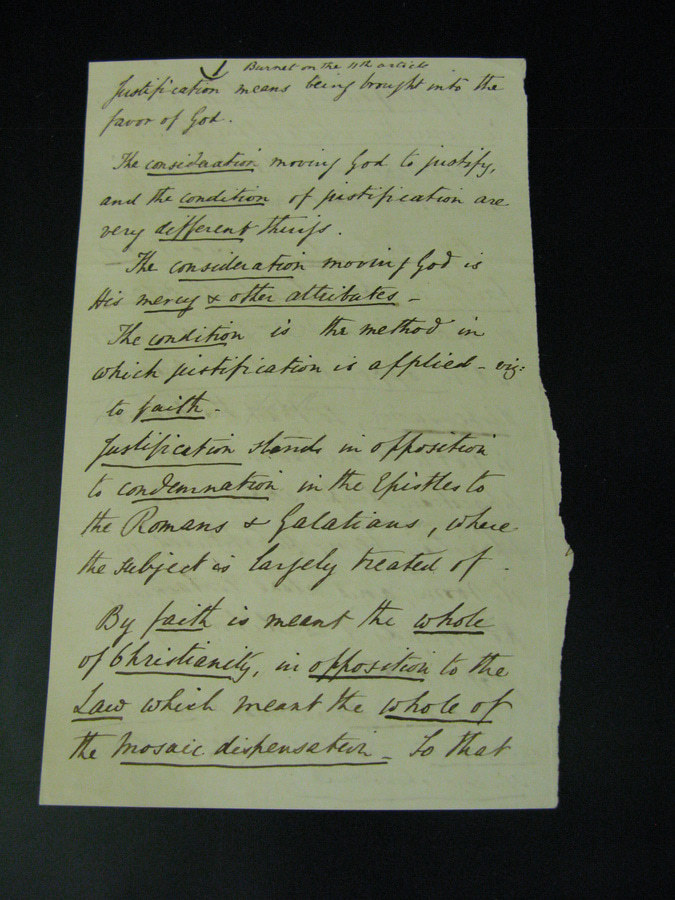 1 Burnet on the 11th article
Justification means being brought into the
favor of God.
The consideration moving God to justify,
and the condition of justification are
very different things.
The consideration moving God is
His mercy & other attributes -
The condition is the method in
which justification is applied - viz:
to faith -
Justification stands in opposition
to condemnation in the Epistles to
the Romans & Galatians, where
the subject is largely treated of -
By faith is meant the whole
of Christianity, in opposition to the
Law which meant the whole of
the Mosaic dispensation - So that